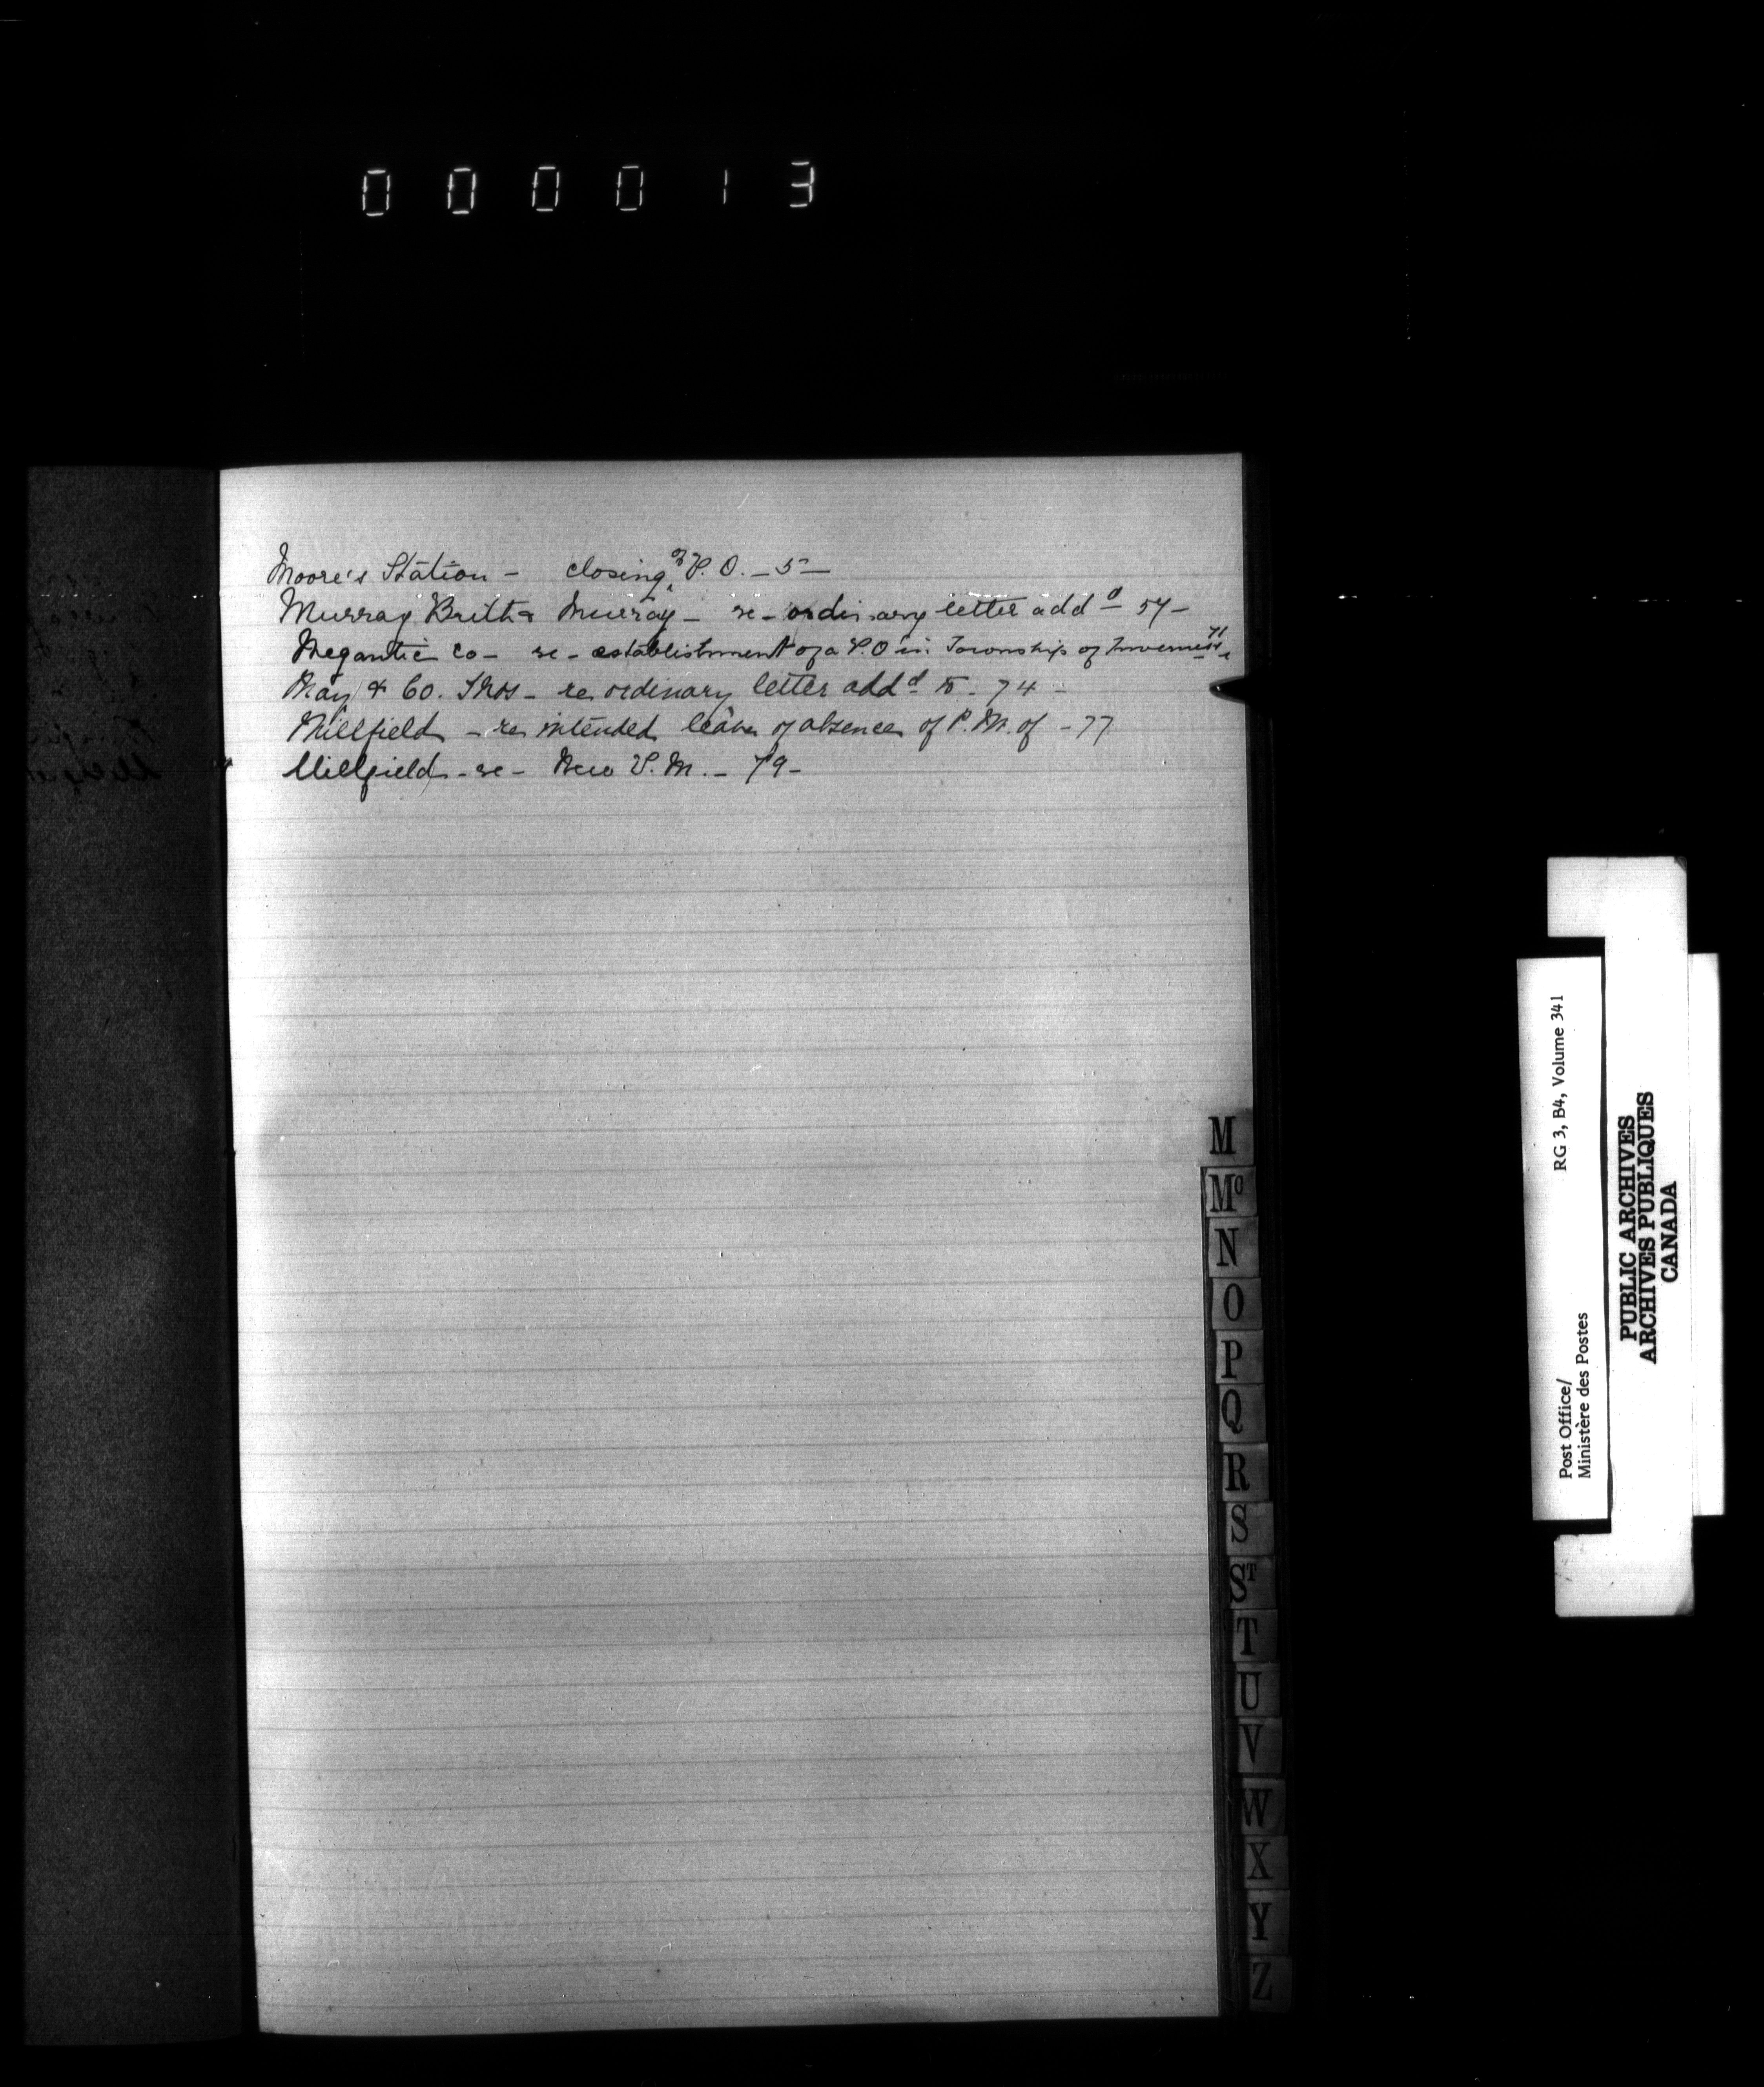 000013
Moore's Station - closing of P. O. - 5 -
Murray Brith & Murray - re - ordinary letter addd 57 -
Megantic Co - re - establishment of a P.O in Township of Inverness 71
May & Co. Thos - re ordinary letter addd to - 74 -
Millfield - re intended leave of absence of P. M. of - 77
Millfield - re - New P. M. - 79 -
M
Mc
N
O
P
Q
R
S
ST
T
U
V
W
X
Y
Z
Post Office/ RG 3, B4, Volume 341
Ministère des Postes
PUBLIC ARCHIVES
ARCHIVES PUBLIQUES
CANADA